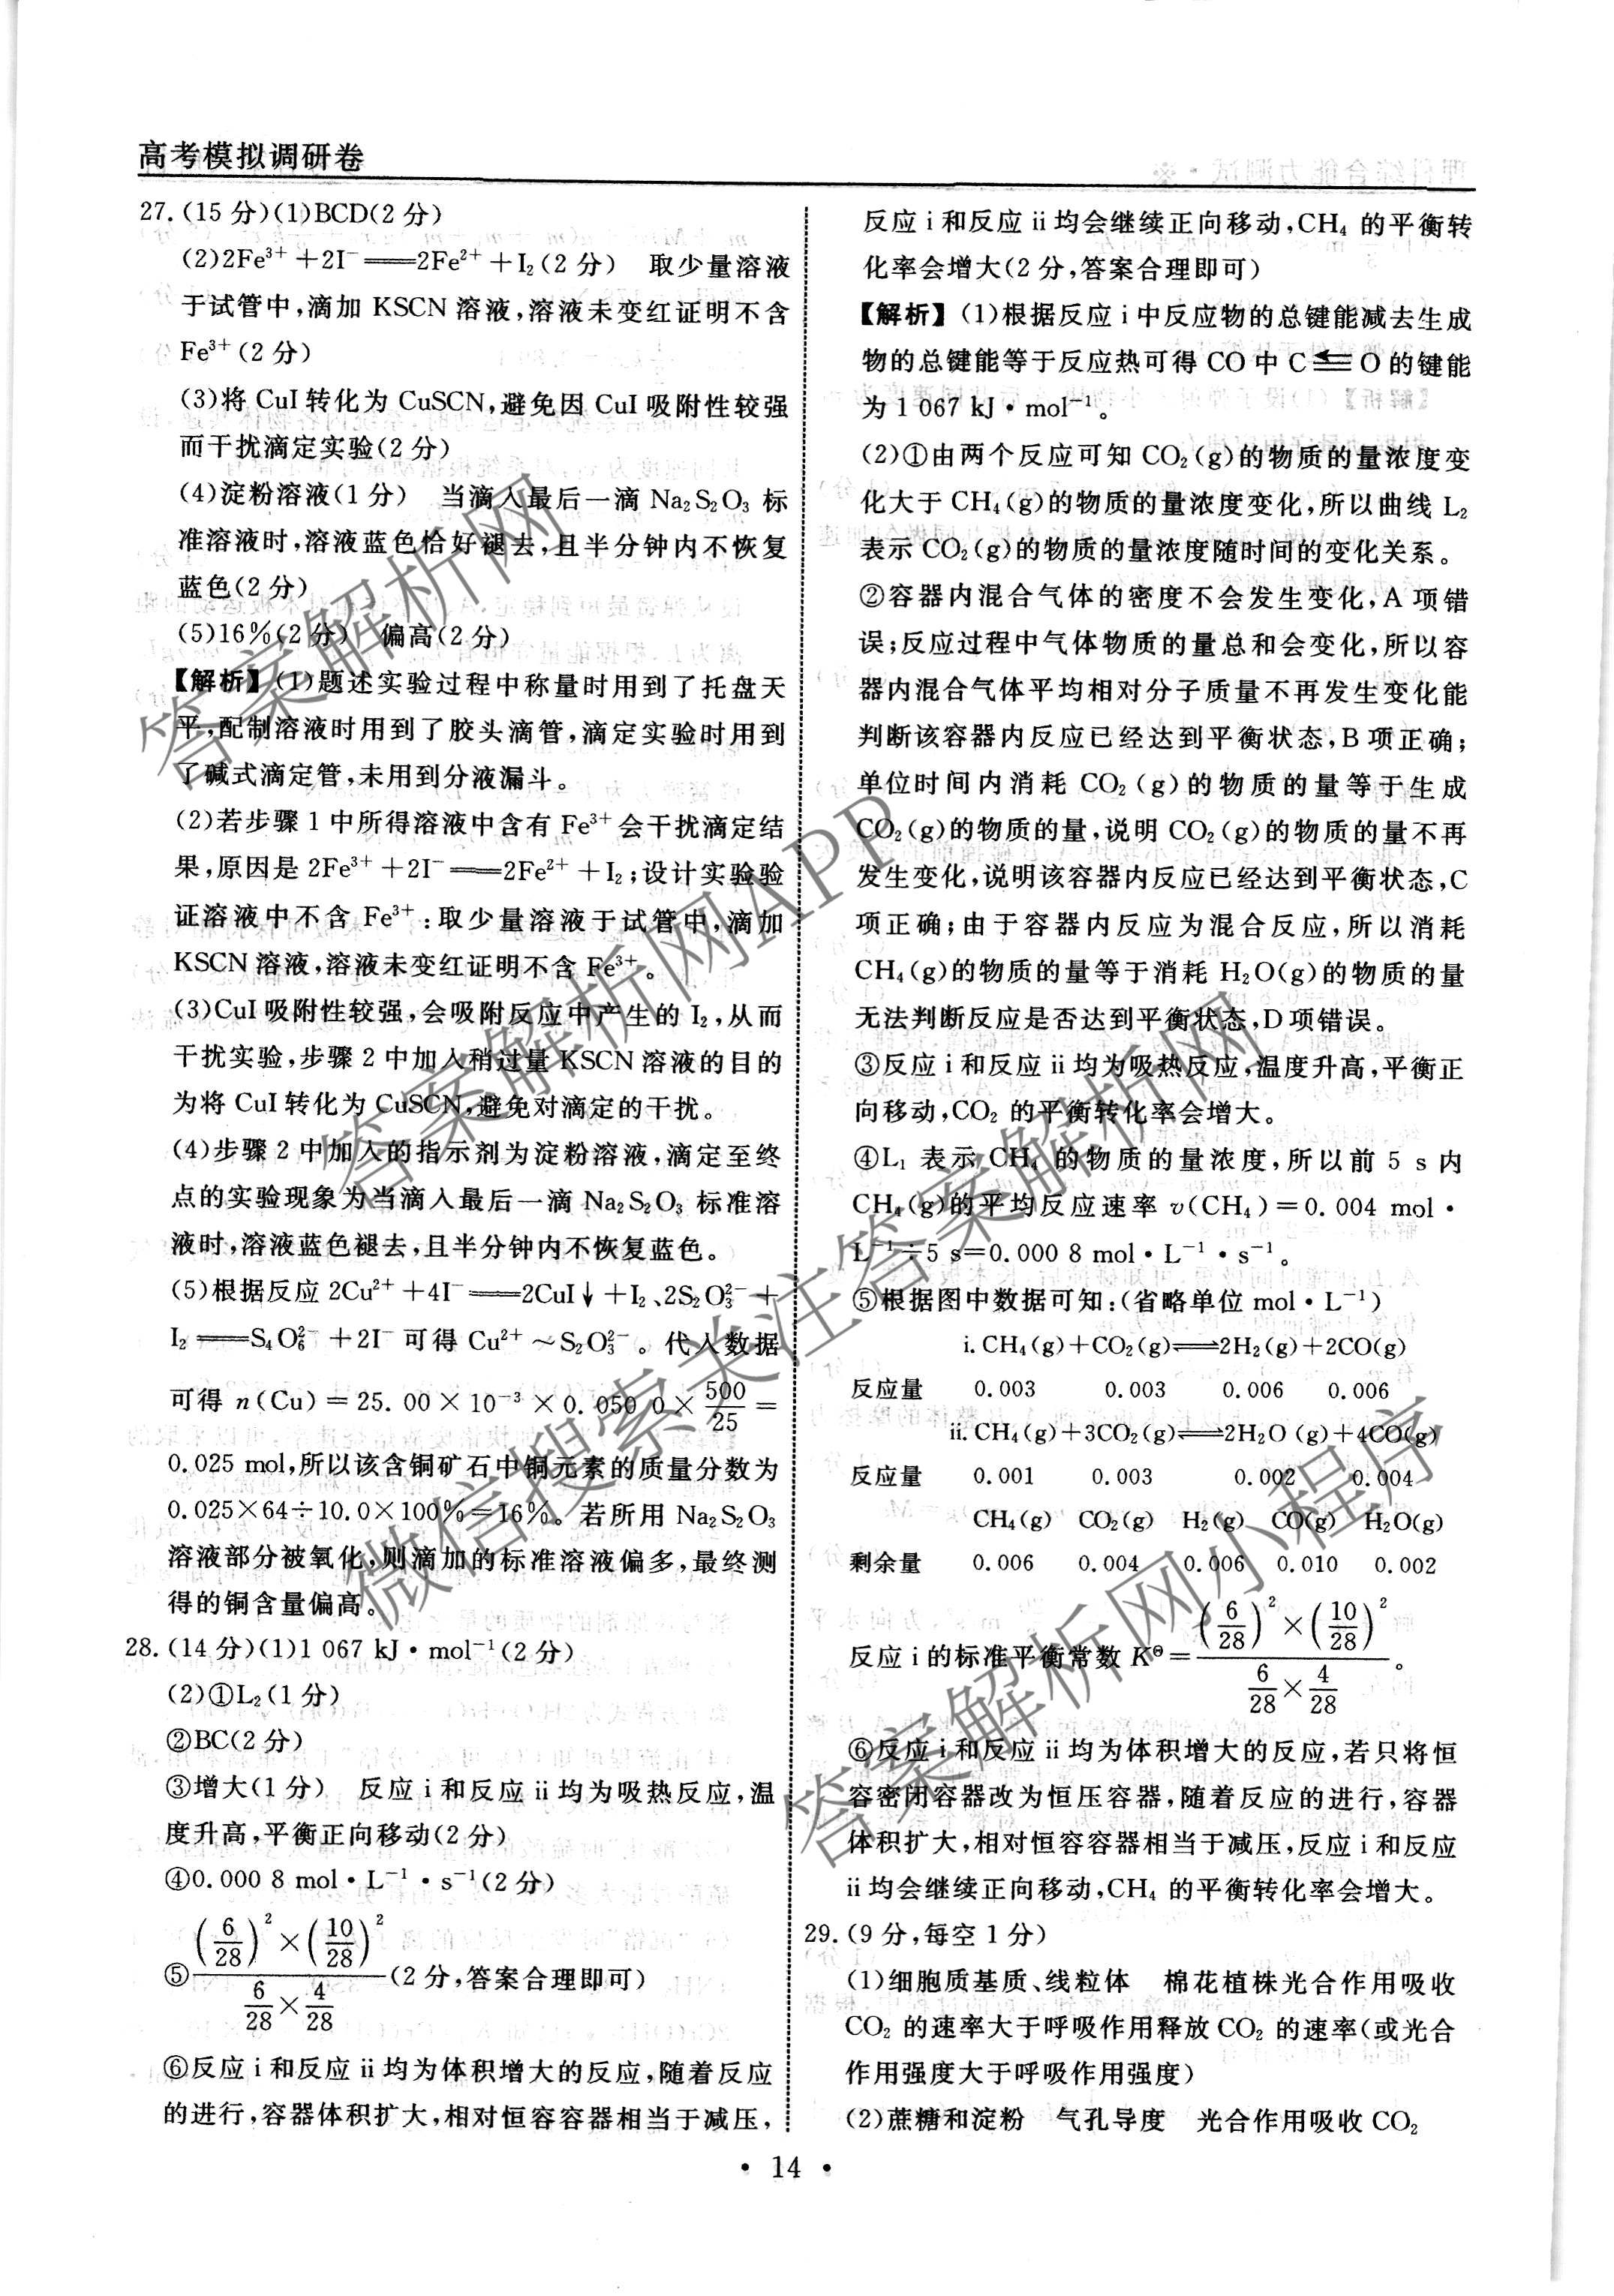 高考模拟调研卷
27.(15 分)(1)BCD(2 分)
(2)2Fe³⁺ +2I⁻ ══2Fe²⁺ +I₂(2 分)　取少量溶液
于试管中,滴加 KSCN 溶液,溶液未变红证明不含
Fe³⁺(2 分)
(3)将 CuI 转化为 CuSCN,避免因 CuI 吸附性较强
而干扰滴定实验(2 分)
(4)淀粉溶液(1 分)　当滴入最后一滴 Na₂S₂O₃ 标
准溶液时,溶液蓝色恰好褪去,且半分钟内不恢复
蓝色(2 分)
(5)16%(2 分)　偏高(2 分)
【解析】(1)题述实验过程中称量时用到了托盘天
平,配制溶液时用到了胶头滴管,滴定实验时用到
了碱式滴定管,未用到分液漏斗。
(2)若步骤 1 中所得溶液中含有 Fe³⁺ 会干扰滴定结
果,原因是 2Fe³⁺ +2I⁻ ══2Fe²⁺ +I₂;设计实验验
证溶液中不含 Fe³⁺:取少量溶液于试管中,滴加
KSCN 溶液,溶液未变红证明不含 Fe³⁺。
(3)CuI 吸附性较强,会吸附反应中产生的 I₂,从而
干扰实验,步骤 2 中加入稍过量 KSCN 溶液的目的
为将 CuI 转化为 CuSCN,避免对滴定的干扰。
(4)步骤 2 中加入的指示剂为淀粉溶液,滴定至终
点的实验现象为当滴入最后一滴 Na₂S₂O₃ 标准溶
液时,溶液蓝色褪去,且半分钟内不恢复蓝色。
(5)根据反应 2Cu²⁺ +4I⁻ ══2CuI↓ +I₂、2S₂O₃²⁻ +
I₂ ══S₄O₆²⁻ +2I⁻ 可得 Cu²⁺ ~S₂O₃²⁻。代入数据
可得 n(Cu)=25.00×10⁻³×0.050 0×500/25=
0.025 mol,所以该含铜矿石中铜元素的质量分数为
0.025×64÷10.0×100%=16%。若所用 Na₂S₂O₃
溶液部分被氧化,则滴加的标准溶液偏多,最终测
得的铜含量偏高。
28.(14 分)(1)1 067 kJ·mol⁻¹(2 分)
(2)①L₂(1 分)
②BC(2 分)
③增大(1 分)　反应 i 和反应 ii 均为吸热反应,温
度升高,平衡正向移动(2 分)
④0.000 8 mol·L⁻¹·s⁻¹(2 分)
⑤((6/28)²×(10/28)²)/(6/28×4/28)(2 分,答案合理即可)
⑥反应 i 和反应 ii 均为体积增大的反应,随着反应
的进行,容器体积扩大,相对恒容容器相当于减压,
反应 i 和反应 ii 均会继续正向移动,CH₄ 的平衡转
化率会增大(2 分,答案合理即可)
【解析】(1)根据反应 i 中反应物的总键能减去生成
物的总键能等于反应热可得 CO 中 C⇚O 的键能
为 1 067 kJ·mol⁻¹。
(2)①由两个反应可知 CO₂(g)的物质的量浓度变
化大于 CH₄(g)的物质的量浓度变化,所以曲线 L₂
表示 CO₂(g)的物质的量浓度随时间的变化关系。
②容器内混合气体的密度不会发生变化,A 项错
误;反应过程中气体物质的量总和会变化,所以容
器内混合气体平均相对分子质量不再发生变化能
判断该容器内反应已经达到平衡状态,B 项正确;
单位时间内消耗 CO₂(g)的物质的量等于生成
CO₂(g)的物质的量,说明 CO₂(g)的物质的量不再
发生变化,说明该容器内反应已经达到平衡状态,C
项正确;由于容器内反应为混合反应,所以消耗
CH₄(g)的物质的量等于消耗 H₂O(g)的物质的量
无法判断反应是否达到平衡状态,D 项错误。
③反应 i 和反应 ii 均为吸热反应,温度升高,平衡正
向移动,CO₂ 的平衡转化率会增大。
④L₁ 表示 CH₄ 的物质的量浓度,所以前 5 s 内
CH₄(g)的平均反应速率 v(CH₄)=0.004 mol·
L⁻¹÷5 s=0.000 8 mol·L⁻¹·s⁻¹。
⑤根据图中数据可知:(省略单位 mol·L⁻¹)
i.CH₄(g)+CO₂(g)⇌2H₂(g)+2CO(g)
反应量　0.003　0.003　0.006　0.006
ii.CH₄(g)+3CO₂(g)⇌2H₂O(g)+4CO(g)
反应量　0.001　0.003　0.002　0.004
CH₄(g)　CO₂(g)　H₂(g)　CO(g)　H₂O(g)
剩余量　0.006　0.004　0.006　0.010　0.002
反应 i 的标准平衡常数 K^Θ=((6/28)²×(10/28)²)/(6/28×4/28)。
⑥反应 i 和反应 ii 均为体积增大的反应,若只将恒
容密闭容器改为恒压容器,随着反应的进行,容器
体积扩大,相对恒容容器相当于减压,反应 i 和反应
ii 均会继续正向移动,CH₄ 的平衡转化率会增大。
29.(9 分,每空 1 分)
(1)细胞质基质、线粒体　棉花植株光合作用吸收
CO₂ 的速率大于呼吸作用释放 CO₂ 的速率(或光合
作用强度大于呼吸作用强度)
(2)蔗糖和淀粉　气孔导度　光合作用吸收 CO₂
· 14 ·
答案解析网
答案解析网APP
微信搜索关注答案解析网
答案解析网小程序